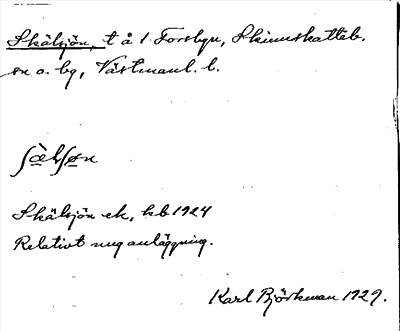 Skälsjön, t å 1 Forsbyn, Skinnskatteb.
sn o. bg, Västmanl. l.
ʃæ̀lʃøn
Skälsjön ek, kb 1924
Relativt ung anläggning.
Karl Björkman 1929.